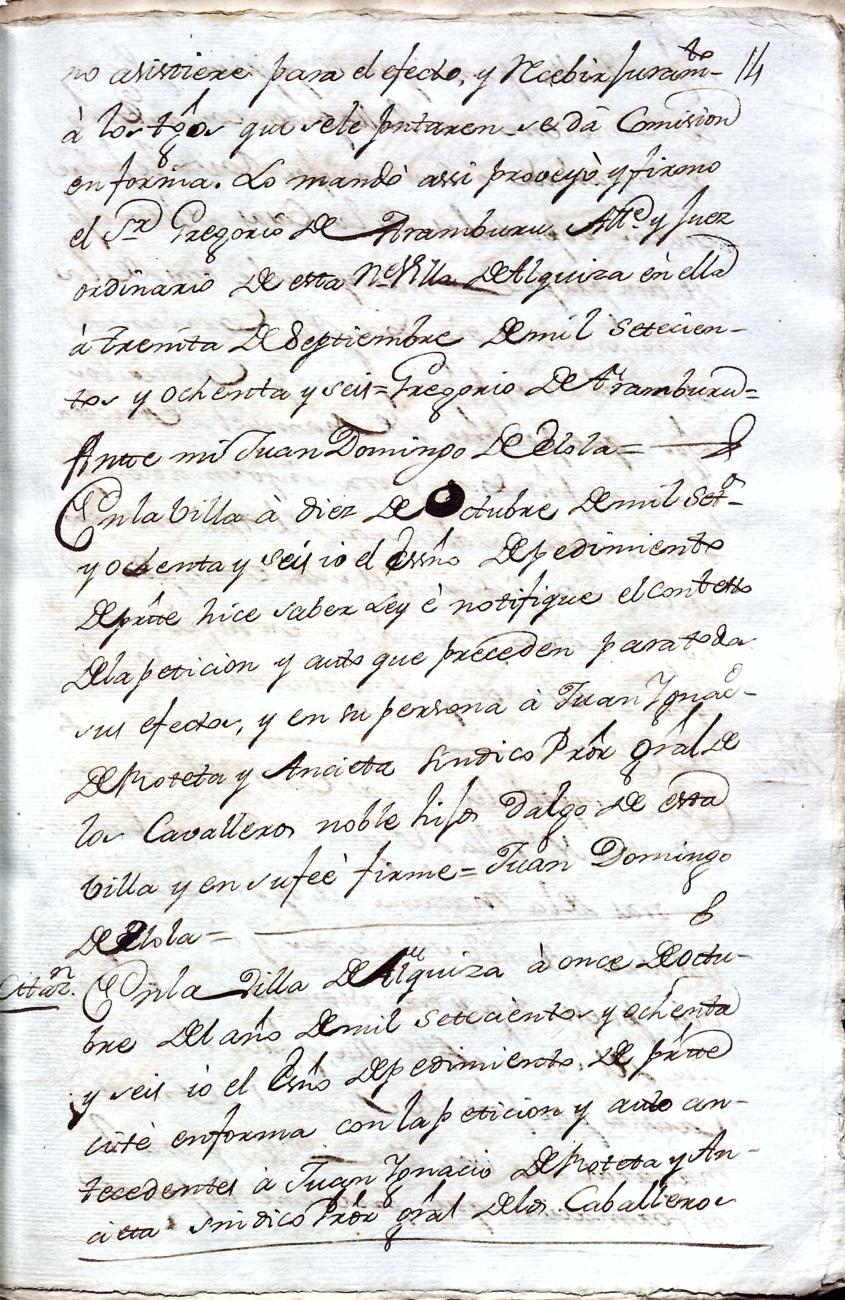 no asistiere para el efecto, y Recebir Juramto 14
à los tgos que sele pntaren se dà Comision
en forma. Lo mandò assi proveyò y firmo
el Sr Gregorio de Aramburu Alle y Juez
ordinario de esta Ne Villa de Alquiza en ella
à treinta de Septiembre de mil setecien-
tos y ochenta y seis = Gregorio de Aramburu =
Ante mi Juan Domingo de Elola =
En la Villa à diez de Octubre de mil Seto
y ochenta y seis io el Essno de pedimiento
de prtte hice saber Ley è notifique el contesto
de la peticion y auto que preceden para todos
sus efectos, y en su persona à Juan Ygnaco
de Roteta y Ancieta sindico Pror gral de
los Cavalleros noble hijos dalgo de esta
Villa y en su feè firme = Juan Domingo
de Elola =
Citaon. En la Villa de Alquiza à once de octu-
bre del año de mil setecientos y ochenta
y seis io el Esno de pedimiento de prtte
citè en forma con la peticion y auto an-
tecedentes à Juan Ygnacio de Roteta y An-
cieta sindico Pror gral delos Caballeros